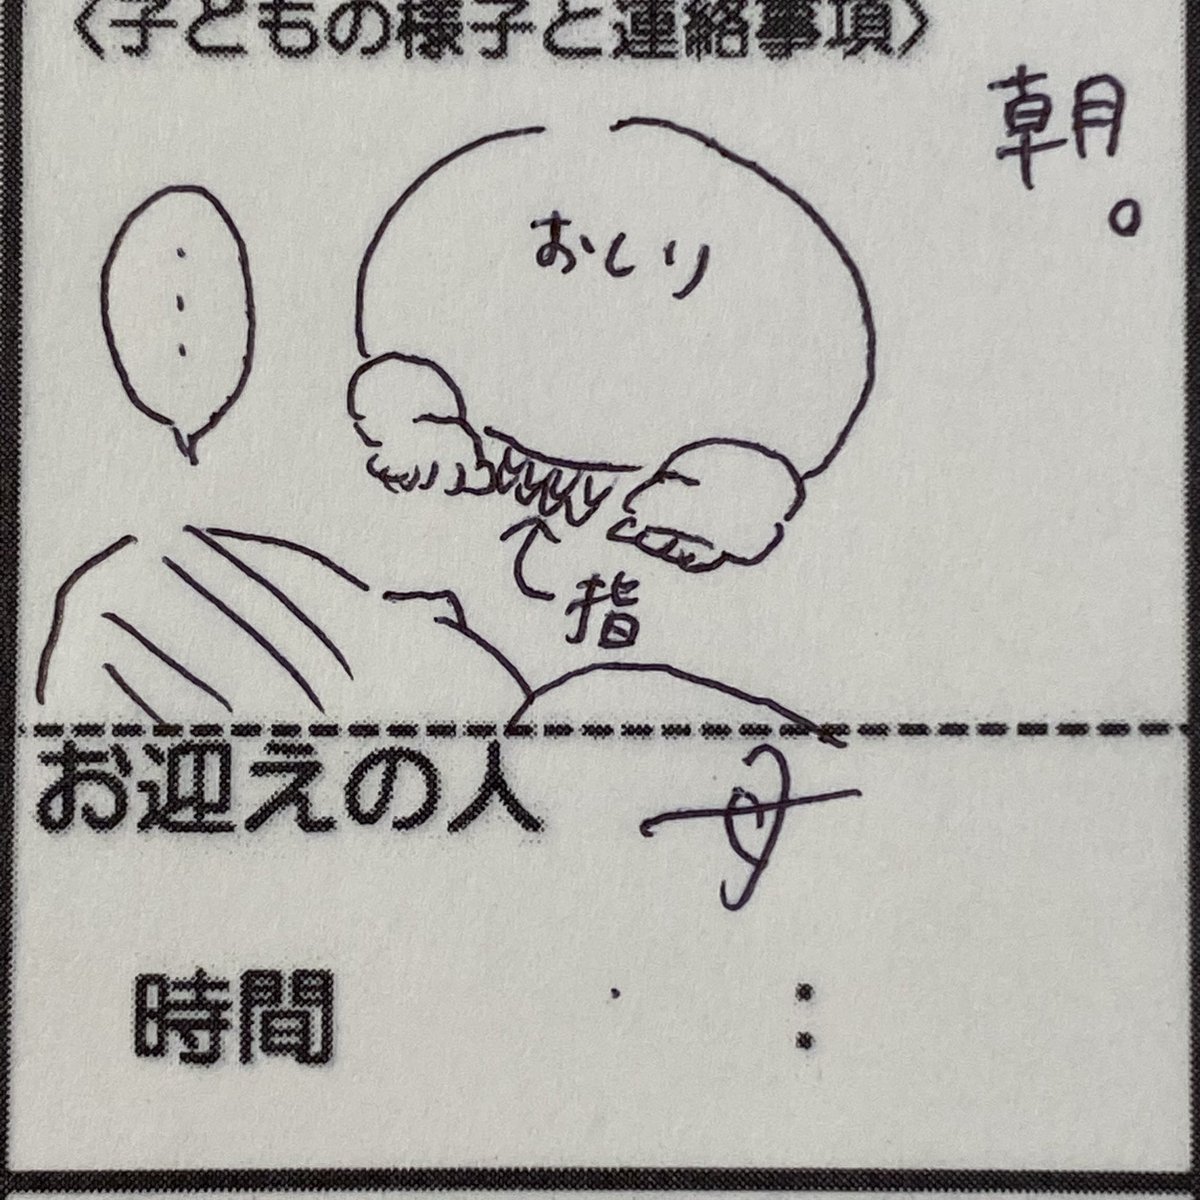 〈子どもの様子と連絡事項〉
朝。
おしり
…
指
お迎えの人 母
時間 :